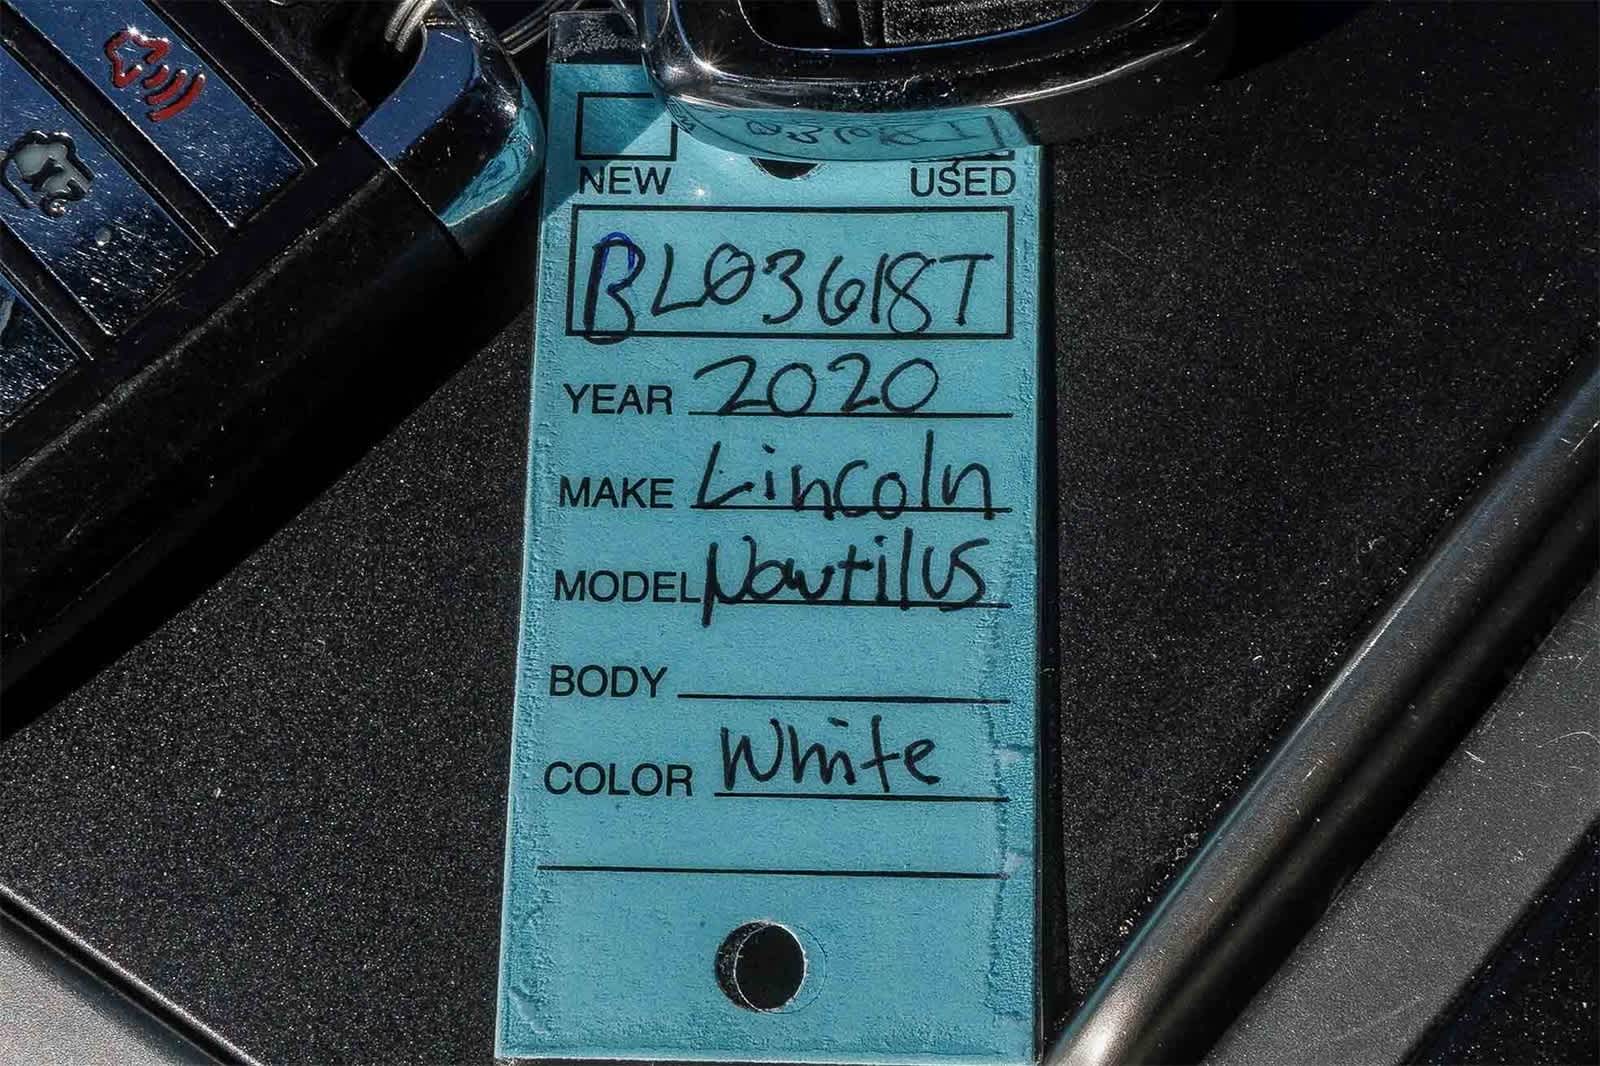 NEW USED
BL03618T
YEAR 2020
MAKE Lincoln
MODEL Nautilus
BODY
COLOR White